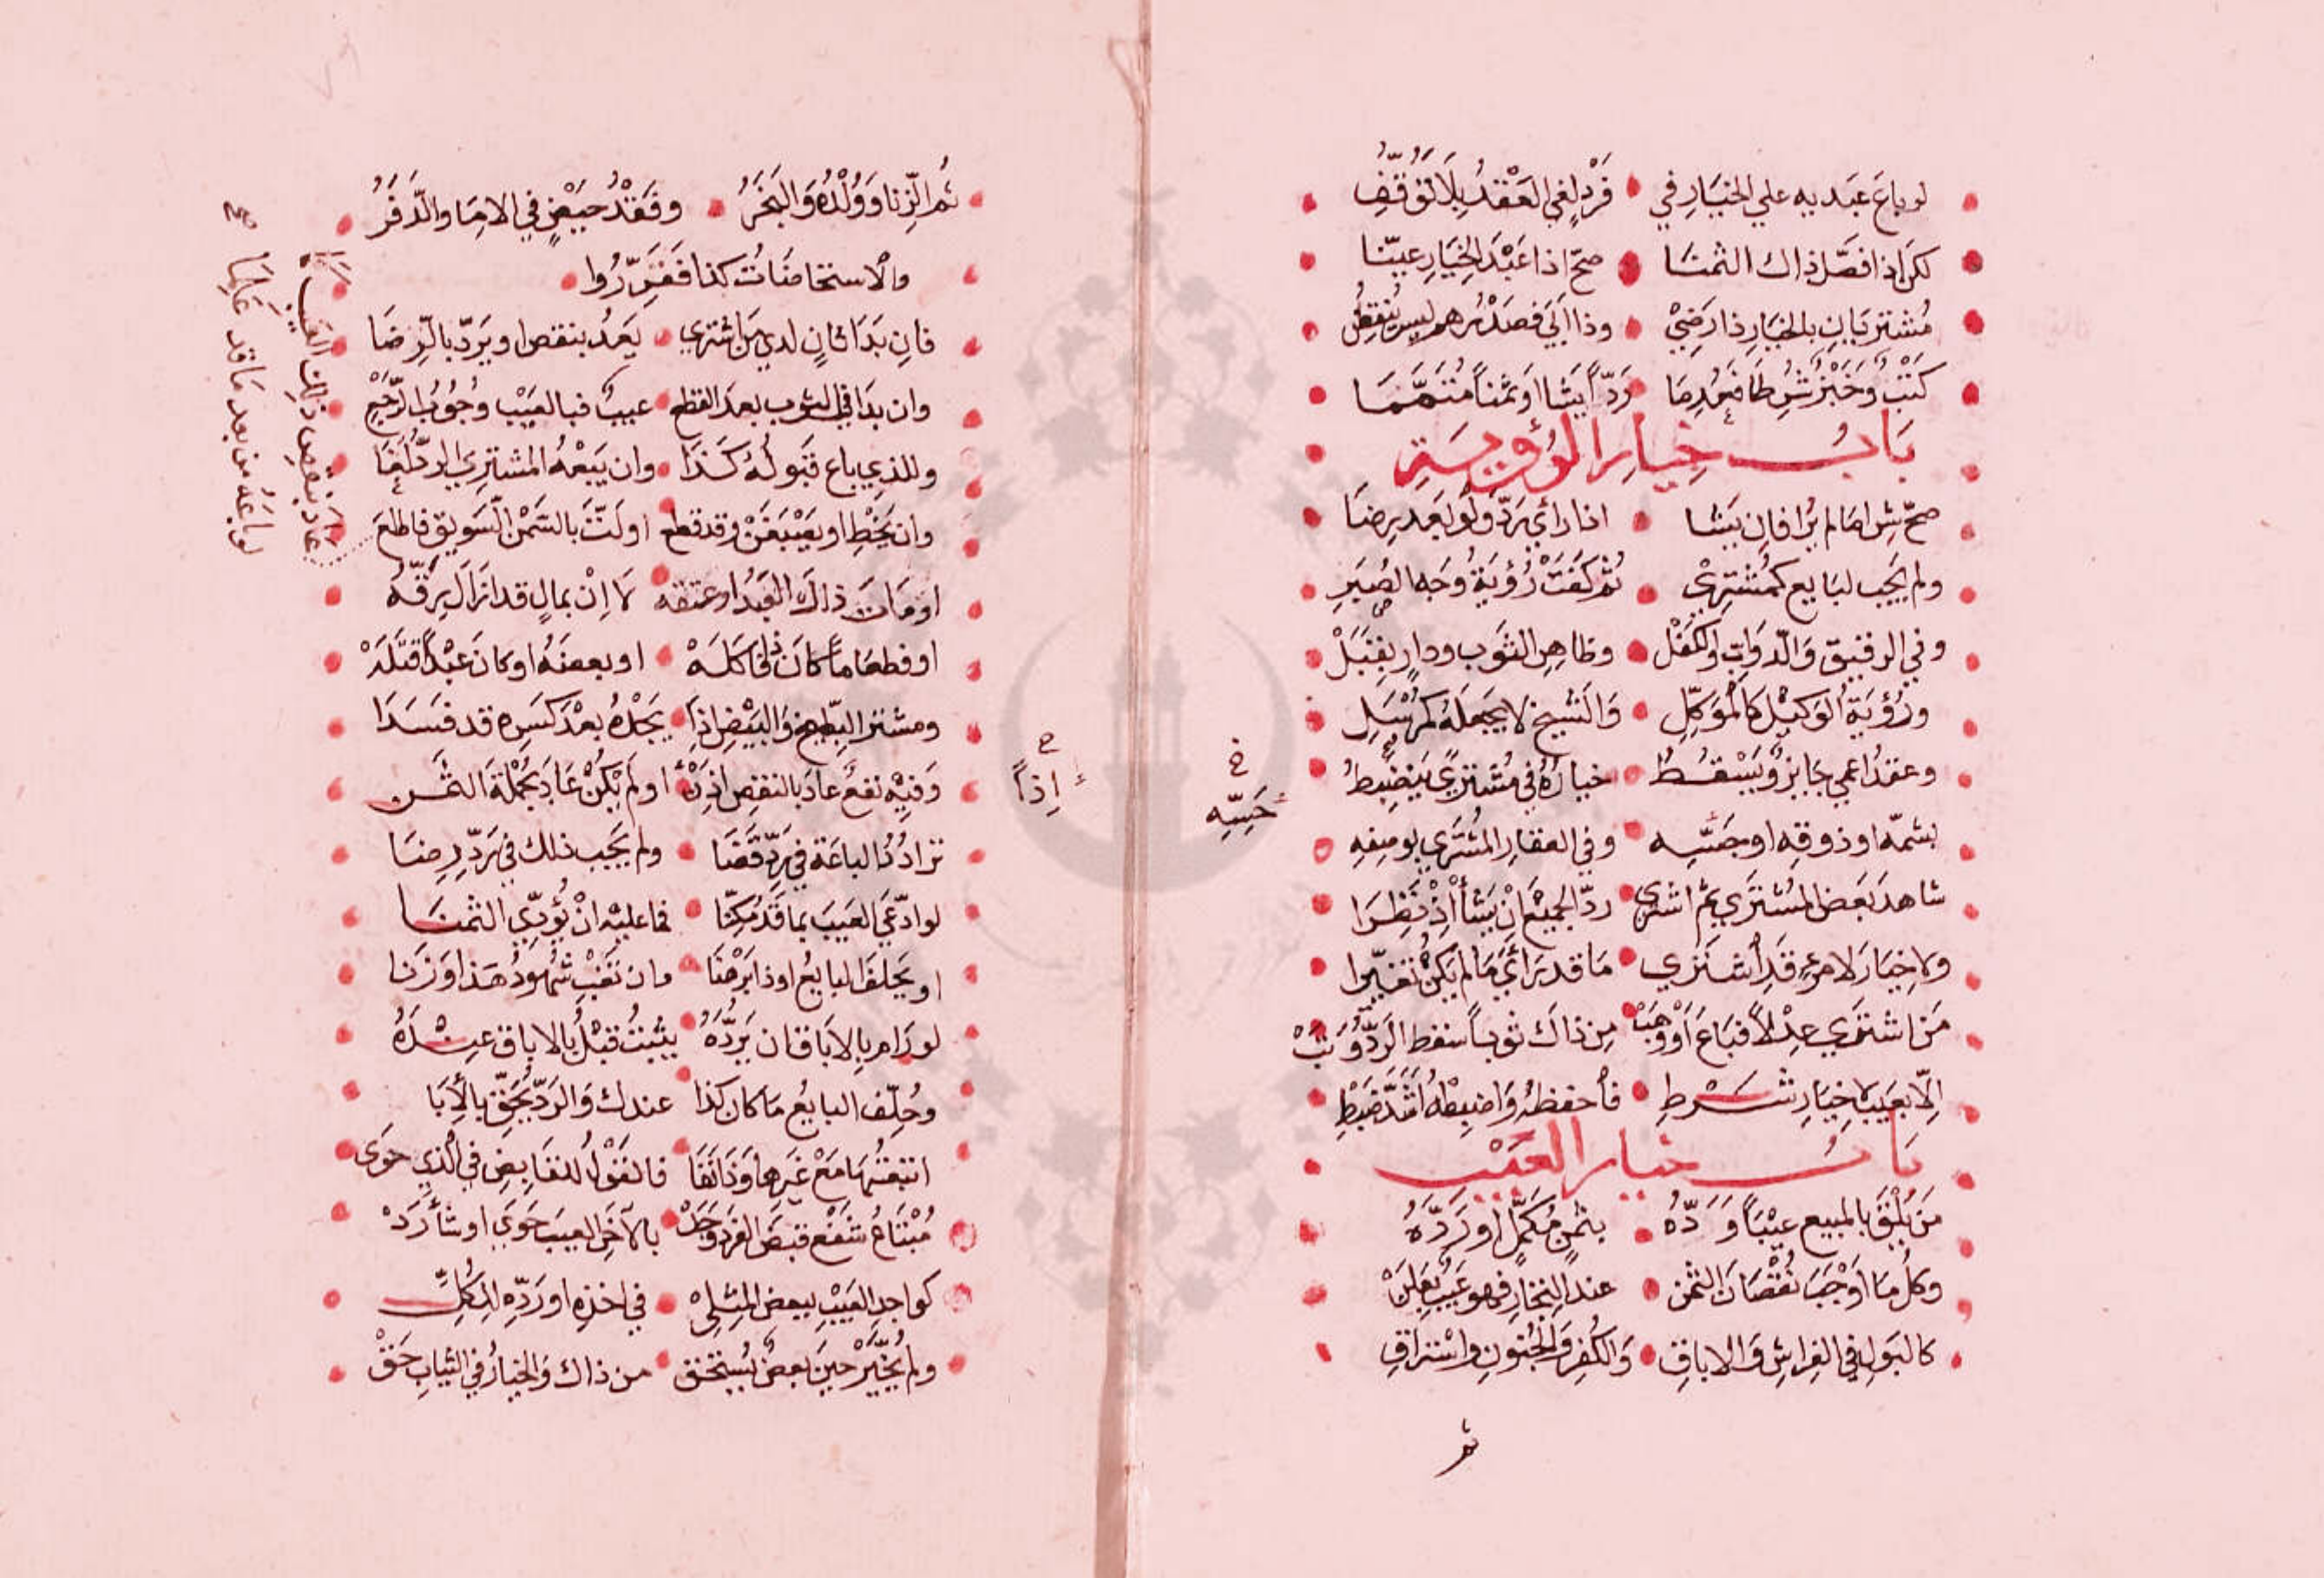 لو باع عبديه علي الخيار في فرد لغي العقد بلا توقف
لكن اذا فصل ذاك الثمنا صح اذا عبد الخيار عينا
مشتريان بالخيار ذا رضي وذا ابي فصدرهم ليس ينقض
كتب وخبز شرطا فعدما رد ايشا او ثمنا متمما
باب خيار الرؤية
صح شرا ما لم يرا فان يشا اذا رأي رد ولو بعد رضا
ولم يجب لبايع كمشتري ثم كفت رؤية وجه الصبر
وفي الرقيق والدوات والكفل وظاهر الثوب ودار يقتبل
ورؤية الوكيل كالموكل والشيخ لا يجعله كمرسل
وعقد اعمي جايز ويسقط خياره في مشتري ينضبط
بشمه او ذوقه او جسه وفي العقار المشتري بوصفه
شاهد بعض المشتري ثم اشتري رد الجميع ان يشأ اذ نظرا
ولا خيار لامرء قد اشتري ما قد رأي ما لم يكن تغيرا
من اشتري عدلا فباع او وهب من ذاك ثوبا سقط الرد وتب
الا بعيب لا خيار شرط فاحفظه واضبطه اشد ضبط
باب خيار العيب
من يلق بالمبيع عيبا وده بثمن مكمل او رده
وكل ما اوجب نقصان الثمن عند التجار فهو عيب يعلن
كالبول في الفراش والاباق والكفر والجنون واستراق
ثم
خ
حسه
ثم الزنا وولده والبخر وفقد حيض في الاما والدفر
والاستحاضات كذا فقرروا
فان بدا ثان لدي من اشتري يعد بنقص او يرد بالرضا
وان بدا في الثوب بعد القطع عيب فبالعيب وجوب الرجع
وللذي باع قبوله كذا وان يبعه المشتري الرد لغا
وان يخط او بعيب عن وقد قطع او لت بالسمن السويق فاطلع
او مات ذاك العبد او عتقه لا ان بمال قد ازال رقه
او طعاما كان ذا كله او بعضه او كان عبدا قتله
ومشتر البطيخ والبيض اذا يجده بعد كسره قد فسدا
وفيه نفع عاد بالنقص اذن او لم يكن عاد بجملة الثمن
تراد ذا الباعة في رد قضا ولم يجب ذلك في رد رضا
لو ادعي العيب بما قد مكنا فما عليه ان يؤدي الثمنا
او يحلف البايع او ذا برهنا وان تغب شهود هذا وزنا
لو رام بالاباق ان يرده يثبت قبل بالاباق عنده
وحلف البايع ما كان كذا عندك والرد بحق بالأبا
اتفقتما مع غيرها وذا نفا فالقول للقابض في الذي حوى
مبتاع شفع قبض الفرد وجد بالآخر العيب حوي او شأ رد
كواجد العيب ببعض المثلي في اخذه او رده للكل
ولم يخير حين بعض يستحق من ذاك والخيار في الثياب حق
ح
اذا
عاد بنقص ذلك العيب كما
لو باعه من بعد ما قد علما
صح